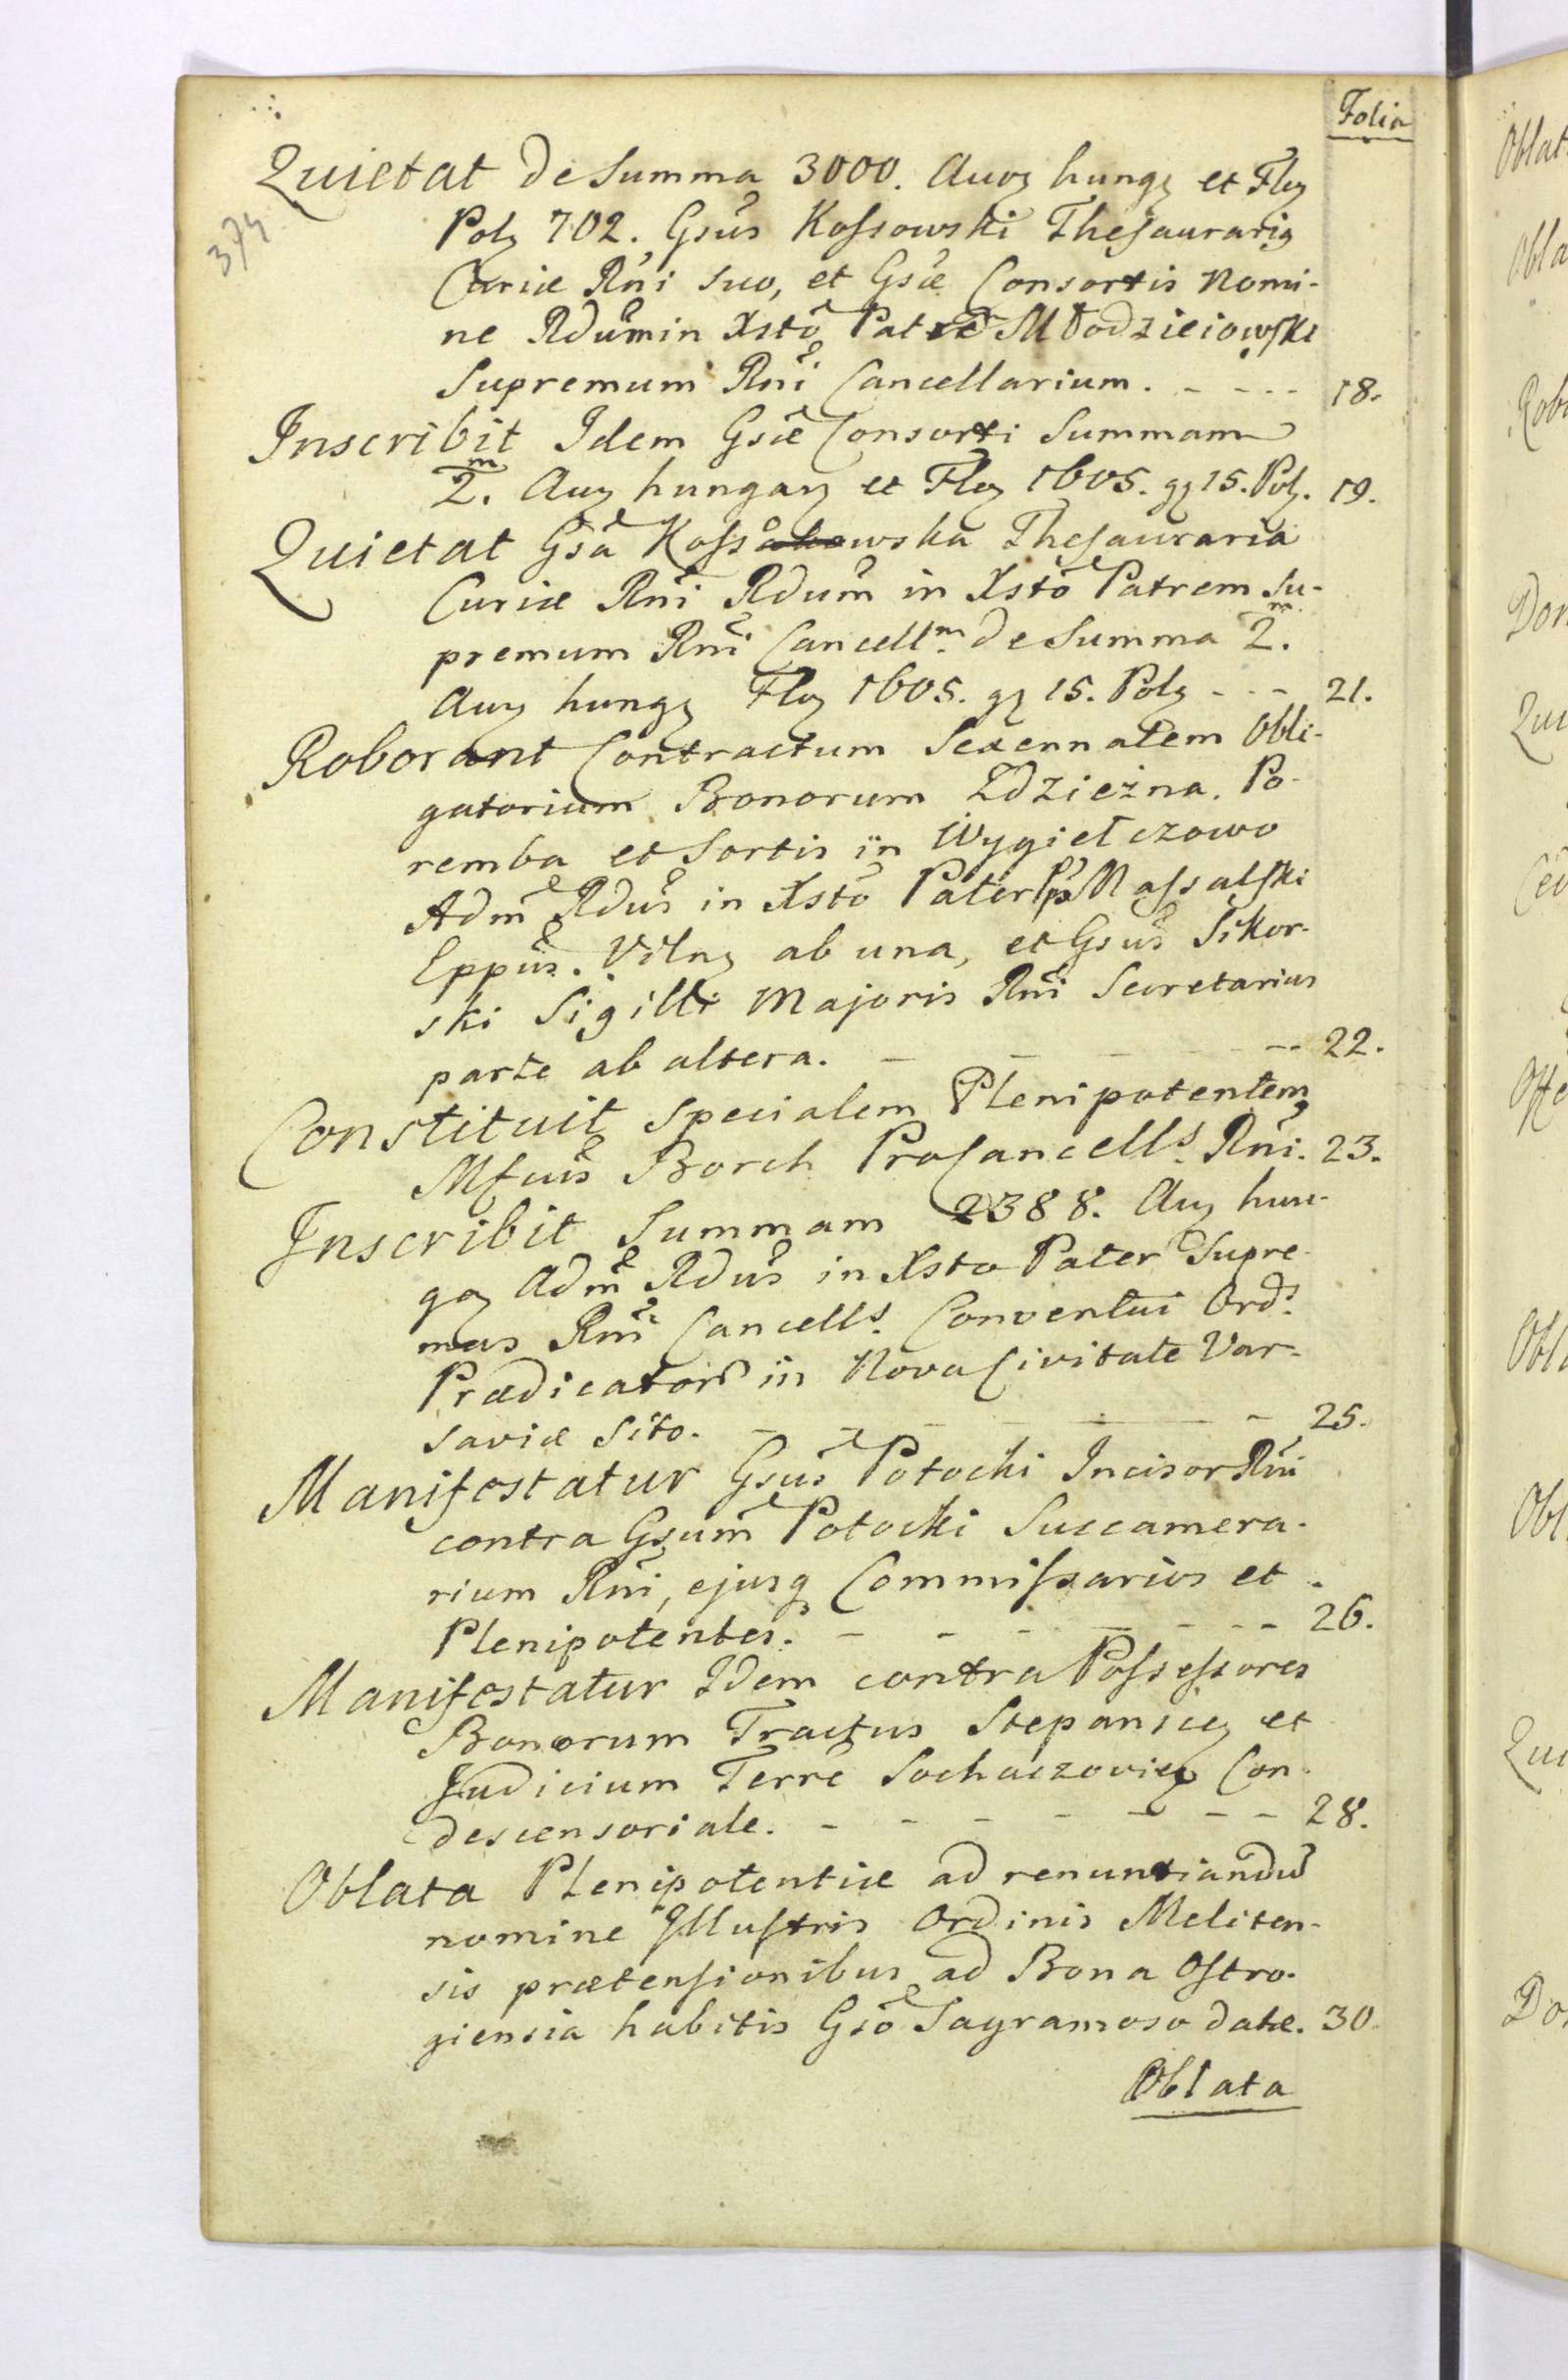 Folia
Quietat de Summa 3000. Auoꝝ hungꝝ et Floꝝ
Polꝝ 702. Gsus Kossowski Thesaurariꝝ
Curiæ Rni suo, et Gsæ Consortis nomi-
ne Rdum in Xsto Patrē Młodzieiowski
Supremum Rni Cancellarium. - - - - 18.
Inscribit Idem Gsæ Consorti Summam
2.m Auꝝ hungarꝝ et Floꝝ 1605. gꝝ 15. Polꝝ. 19.
Quietat Gsa Kossowska Thesauraria
Curiæ Rni Rdum in Xsto Patrem Su-
premum Rni Cancellm. de Summa 2.m
Auꝝ hungꝝ Floꝝ 1605. gꝝ 15. Polꝝ - - - 21.
Roborant Contractum Sexennalem Obli-
gatorium Bonorum Zdzieżna. Po-
remba et Sortis in Wygiełczowo
Adm Rdus in Xsto Pater Pꝑs Massalski
Eppus. Vilnꝝ ab una, et Gsus Sikor-
ski Sigilli Majoris Rni Secretarius
parte ab altera. - - - - - 22.
Constituit Specialem Plenipotentem
Mfcus Borch ProCancells. Rni. 23.
Inscribit Summam 2388. Auꝝ hun-
gaꝝ Adm Rdus in Xsto Pater Supre-
mus Rni Cancells. Conventui Ords.
Prædicator in Nova Civitate Var-
saviæ Sito. - - - - - 25.
Manifestatur Gsus Potocki Incisor Rni
contra Gsum Potocki Succamera-
rium Rni, ejusq Commissarios et
Plenipotentes. - - - - - - 26.
Manifestatur Idem contra Possessores
Bonorum Tractus Stepansieꝝ et
Judicium Terrē Sochaczovieꝝ Con-
descensoriale. - - - - - - - 28.
Oblata Plenipotentiæ ad renuntiandū
nomine Illustris Ordinis Meliten-
sis prætensionibus ad Bona Ostro-
giensia habitis Gso Sagramoso datæ. 30.
Oblata